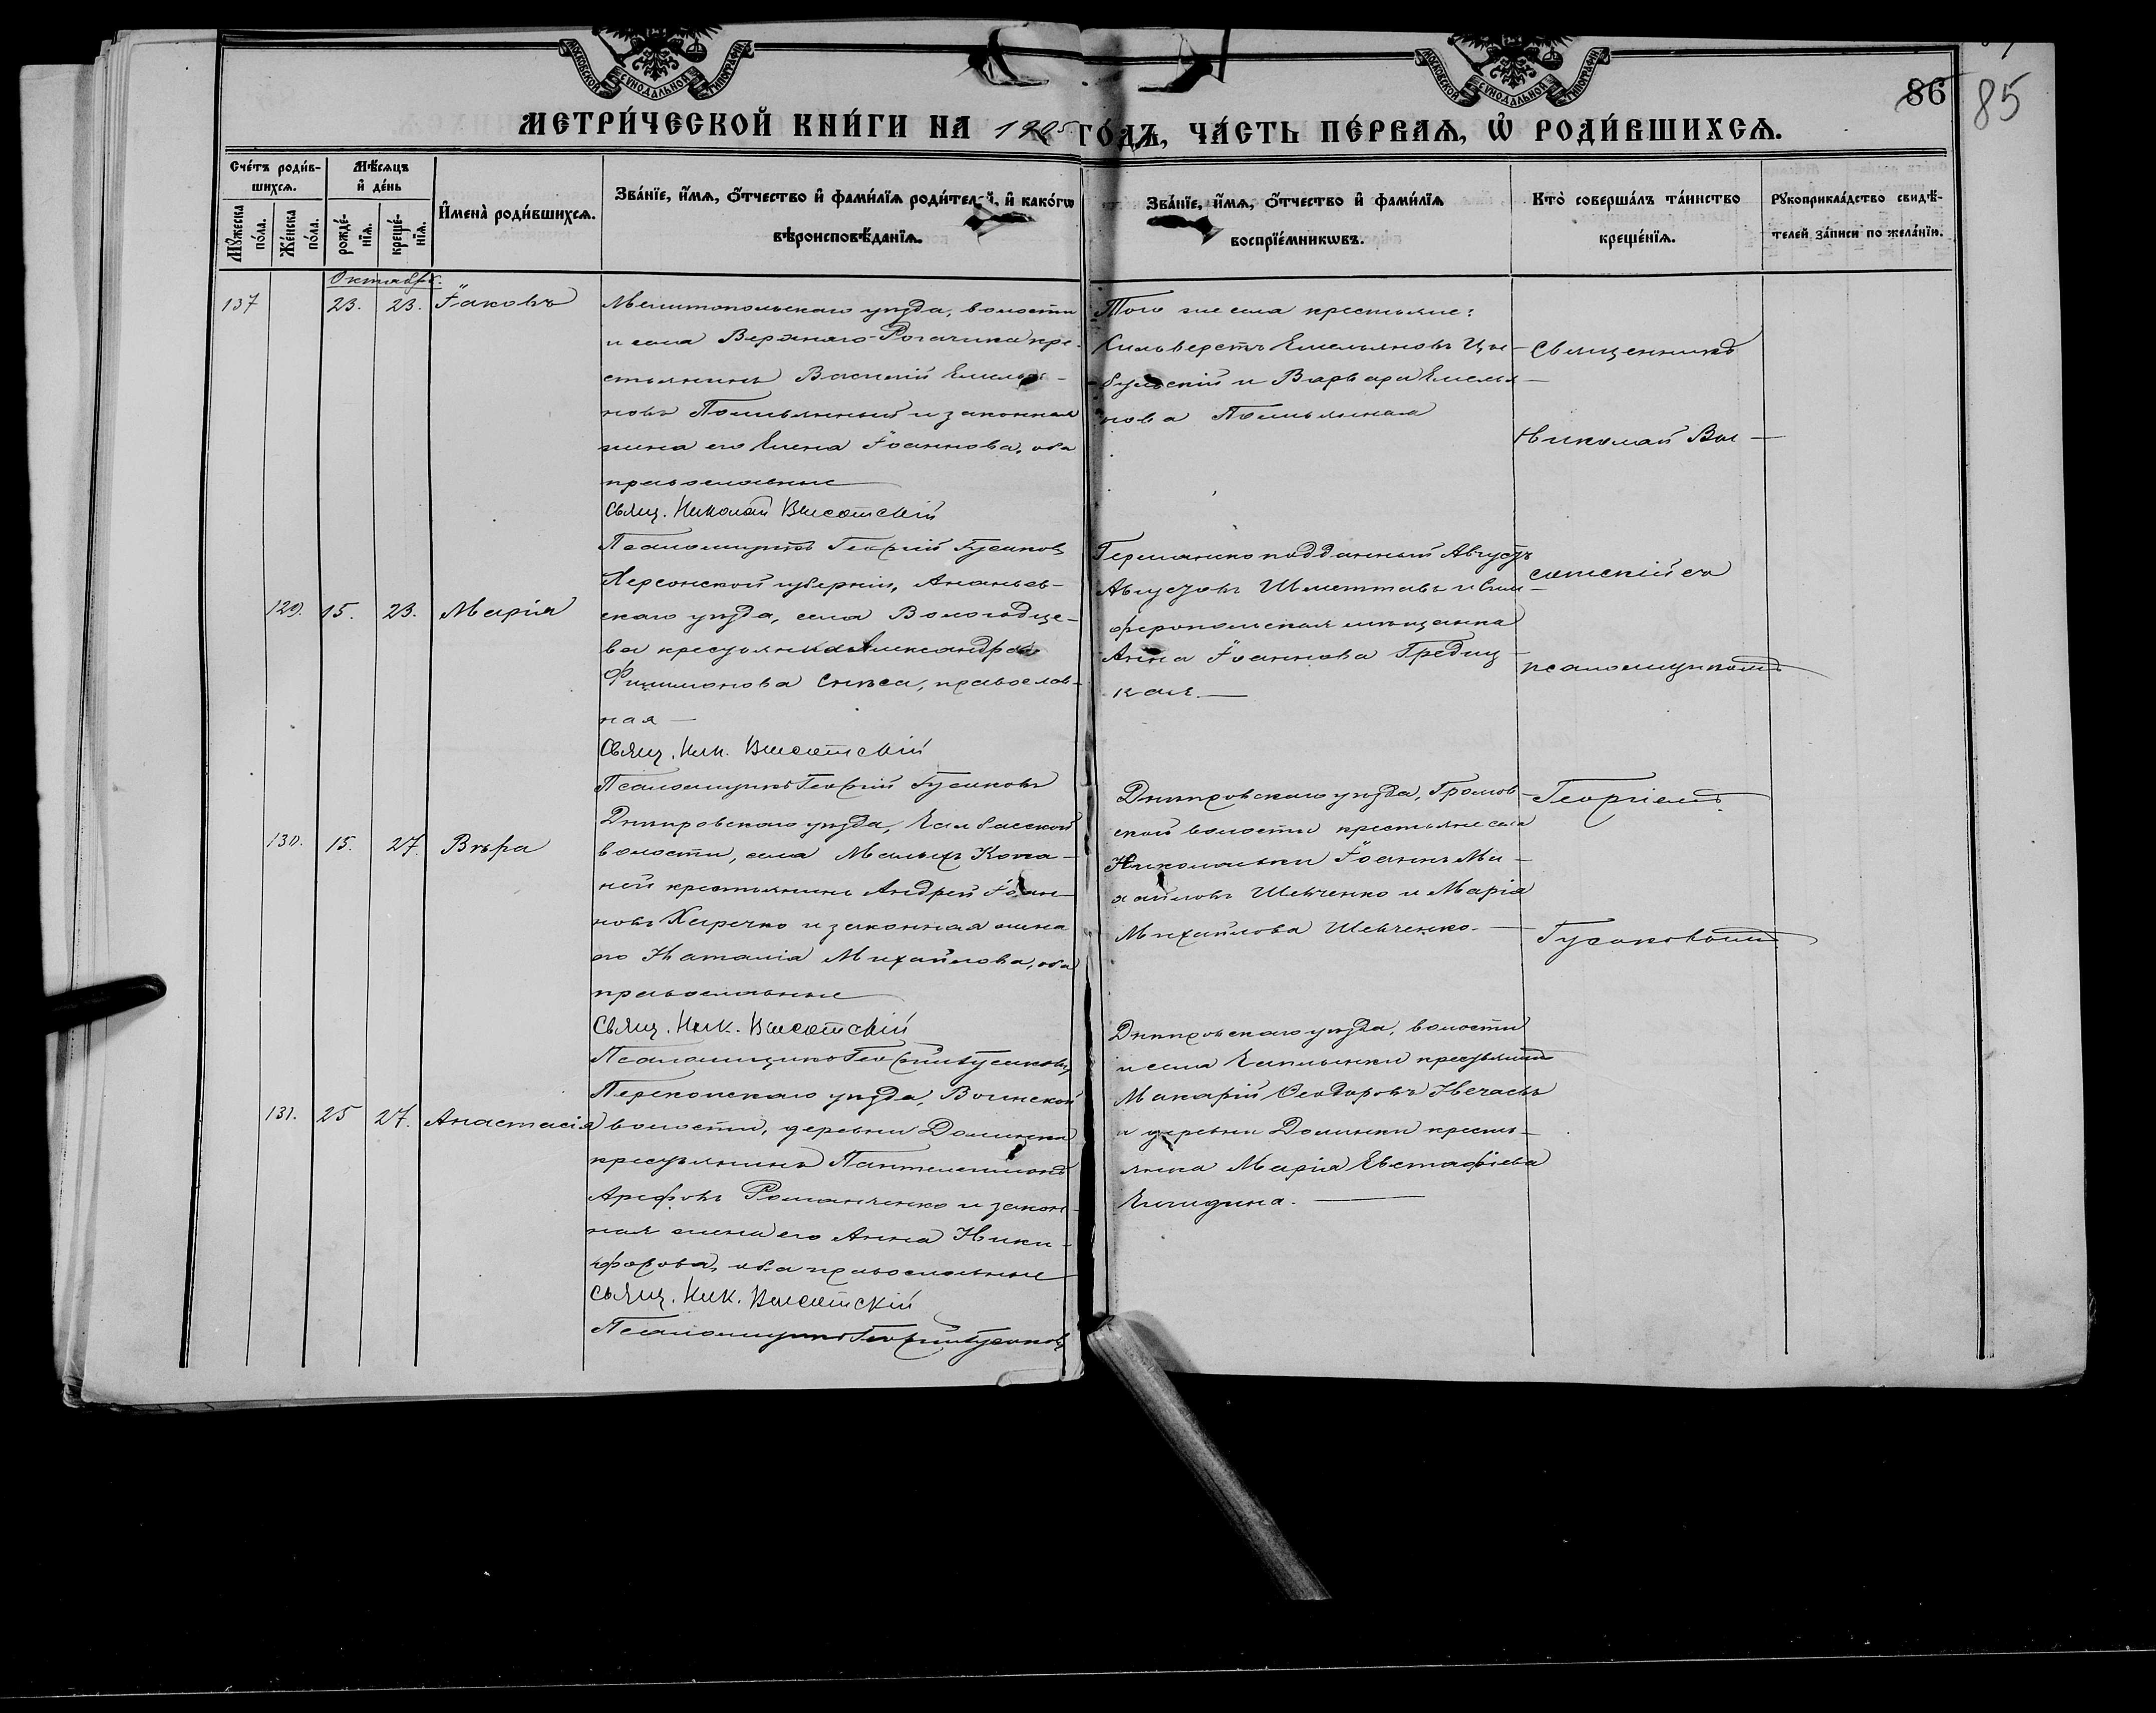 МОСКОВСКОЙ СУНОДАЛЬНОЙ ТИПОГРАФІИ
МОСКОВСКОЙ СУНОДАЛЬНОЙ ТИПОГРАФІИ
86 85
МЕТРИ́ЧЕСКОЙ КНИ́ГИ НА 1905 ГО́ДЪ, ЧА́СТЬ ПЕ́РВАѦ, Ѡ҆ РОДИ́ВШИХСѦ.
Сче́тъ роди́в-
шихсѧ.
Мꙋ́жеска по́ла.
Же́нска по́ла.
Мѣ́сѧцъ
и҆ де́нь
рожде́-
нїѧ.
креще́-
нїѧ.
И҆мена̀ роди́вшихсѧ.
Зва́нїе, и҆́мѧ, ѻ҆́тчество и҆ фами́лїѧ роди́телей, и҆ како́гѡ
вѣроисповѣ́данїѧ.
Зва́нїе, и҆́мѧ, ѻ҆́тчество и҆ фами́лїѧ
воспрїе́мникѡвъ.
Кто̀ соверша́лъ та́инство
креще́нїѧ.
Рꙋкоприкла́дство свидѣ́-
телей за́писи по жела́нїи.
Октябрь.
137 23. 23. Іаковъ
Мелитопольскаго уѣзда, волости
и села Верхняго-Рогачика кре-
стьянинъ Василій Емелья-
новъ Помильянный и законная
жена его Елена Іоаннова, оба
православные
Свящ. Николай Высотскій
Псаломщикъ Георгій Гусаковъ
Того же села крестьяне:
Сильверстъ Емельяновъ Цы-
бульскій и Варвара Емелья-
нова
129. 15. 23. Марія
Херсонской губерніи, Ананьев-
скаго уѣзда, села Вологодце-
ва крестьянка Александра
Филимонова православ-
ная
Свящ. Ник. Высотскій
Псаломщикъ Георгій Гусаковъ
Германско подданный Августъ
Августовъ и Сим-
феропольская мѣщанка
Анна Іоаннова Гредиц-
кая
130. 15. 27. Вѣра
Днѣпровскаго уѣзда,
волости, села Малыхъ Копа-
ней крестьянинъ Андрей Іоан-
новъ Харечко и законная жена
его Наталія Михайлова, оба
православные
Свящ. Ник. Высотскій
Псаломщикъ Георгій Гусаковъ
Днѣпровскаго уѣзда, Громов-
ской волости крестьяне села
Николаевки Іоаннъ Ми-
хайловъ Шевченко и Марія
Михайлова Шевченко.
131. 25 27. Анастасія
Перекопскаго уѣзда, Воинской
волости, деревни Долинки
крестьянинъ Пантелеимонъ
Арефовъ Романченко и закон-
ная жена его Анна Ники-
форова, оба православные
Свящ. Ник. Высотскій
Псаломщикъ Георгій Гусаковъ
Днѣпровскаго уѣзда, волости
и села Каплынки крестьянинъ
Макарій Ѳеодоровъ Нечаевъ
и деревни Долинки кресть-
янка Марія Евстафіева
Священникъ
Николай Вы-
сотскій съ
псаломщикомъ
Георгіемъ
Гусаковымъ